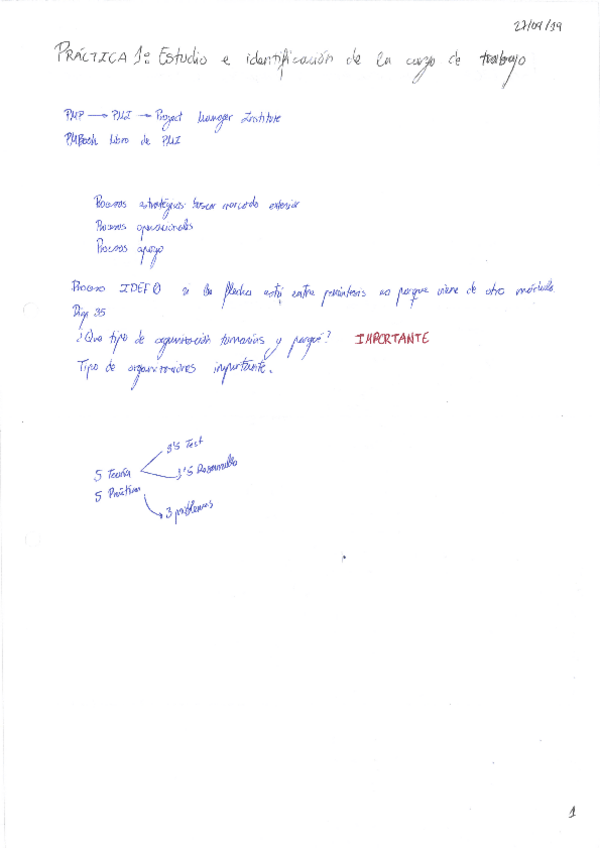 27/09/19
PRÁCTICA 1: Estudio e identificación de la carga de trabajo
PMP → PMI → Project Manager Institute
PMBook libro de PMI
Procesos estratégicos buscar mercado exterior
Procesos operacionales
Procesos apoyo
Proceso IDEF0 si la flecha está entre paréntesis es porque viene de otro
Diap 35
¿Que tipo de organización tomarías y porqué? IMPORTANTE
Tipo de organizaciones importante.
3'5 Test
5 Teoría
1'5 Desarrollo
5 Práctica
3 problemas
1